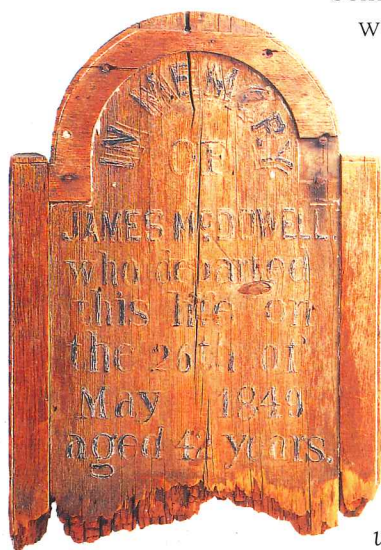 W
IN MEMORY
OF
JAMES McDOWELL.
who departed
this life on
the 20th of
May 1849
aged 42 years.